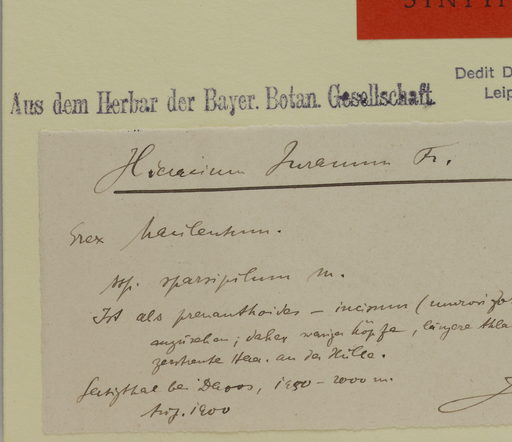 SYNTY
Dedit D
Leip
Aus dem Herbar der Bayer. Botan. Gesellschaft.
Hieracium Juranum Fr.
Grex
ssp. sparsipilum m.
Ist als prenanthoides – incisum
anzusehen; daher wenige Köpfe, längere
zerstreute Haare an der Hülle.
Sertigthal bei Davos, 1950–2000 m.
Aug. 1900